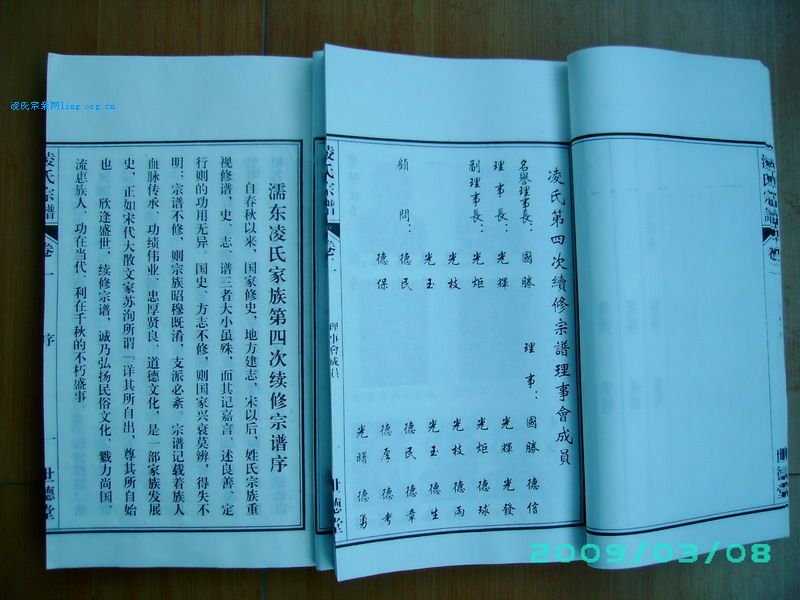 凌氏宗亲网ling.org.cn
凌氏宗譜
凌氏第四次續修宗譜理事會成員
名譽理事長：國勝
理事長：光輝
副理事長：光炬
光枝
光玉
顧問：德民
德保
理事：國勝 德信
光輝 光發
光炬 德球
光枝 德雨
光玉 德生
德民 德章
德厚 德考
光曙 德勇
凌氏宗譜 卷一 理事會成員 一 世德堂
濡东凌氏家族第四次续修宗谱序
自春秋以来，国家修史，地方建志，宋以后，姓氏宗族重
视修谱，史、志、谱三者大小虽殊，而其记嘉言、述良善、定
行则的功用无异。国史、方志不修，则国家兴衰莫辨，得失不
明；宗谱不修，则宗族昭穆既淆，支派必紊。宗谱记载着族人
血脉传承、功绩伟业、忠厚贤良、道德文化，是一部家族发展
史，正如宋代大散文家苏洵所谓「详其所自出，尊其所自始
也」欣逢盛世，续修宗谱，诚乃弘扬民俗文化，戮力尚国、
流惠族人、功在当代、利在千秋的不朽盛事
凌氏宗譜 卷一 序 一 世德堂
2009/03/08